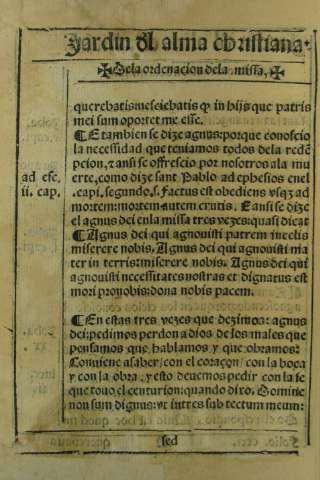 Jardin dl alma christiana.
✠De la ordenacion de la missa.✠
querebatis: nesciebatis q in hijs que patris
mei sunt oportet me esse.
¶E tambien se dize agnus: porque conoscio
la necessidad que teniamos todos de la redē
pcion, z ansi se offrescio por nosotros a la mu
erte, como dize sant Pablo ad ephesios en el
ad efe.
ii. cap.
.capi. segundo. s. Factus est obediens vsqz ad
mortem: mortem autem crucis. E ansi se dize
el agnus dei en la missa tres vezes: quasi dicat
¶Agnus dei qui agnouisti patrem in celis
miserere nobis. Agnus dei qui agnouisti ma
ter in terris: miserere nobis. Agnus dei qui
agnouisti necessitates nostras et dignatus est
mori pro nobis: dona nobis pacem.
¶En estas tres vezes que dezimos: agnus
dei: pedimos perdon a dios de los males que
pensamos que hablamos y que obramos:
Conuiene a saber/ con el coraçon/ con la boca
y con la obra: y esto deuemos pedir con la fe
que touo el centurion: quando dixo. Domine
non sum dignus: vt intres sub tectum meum:
sed